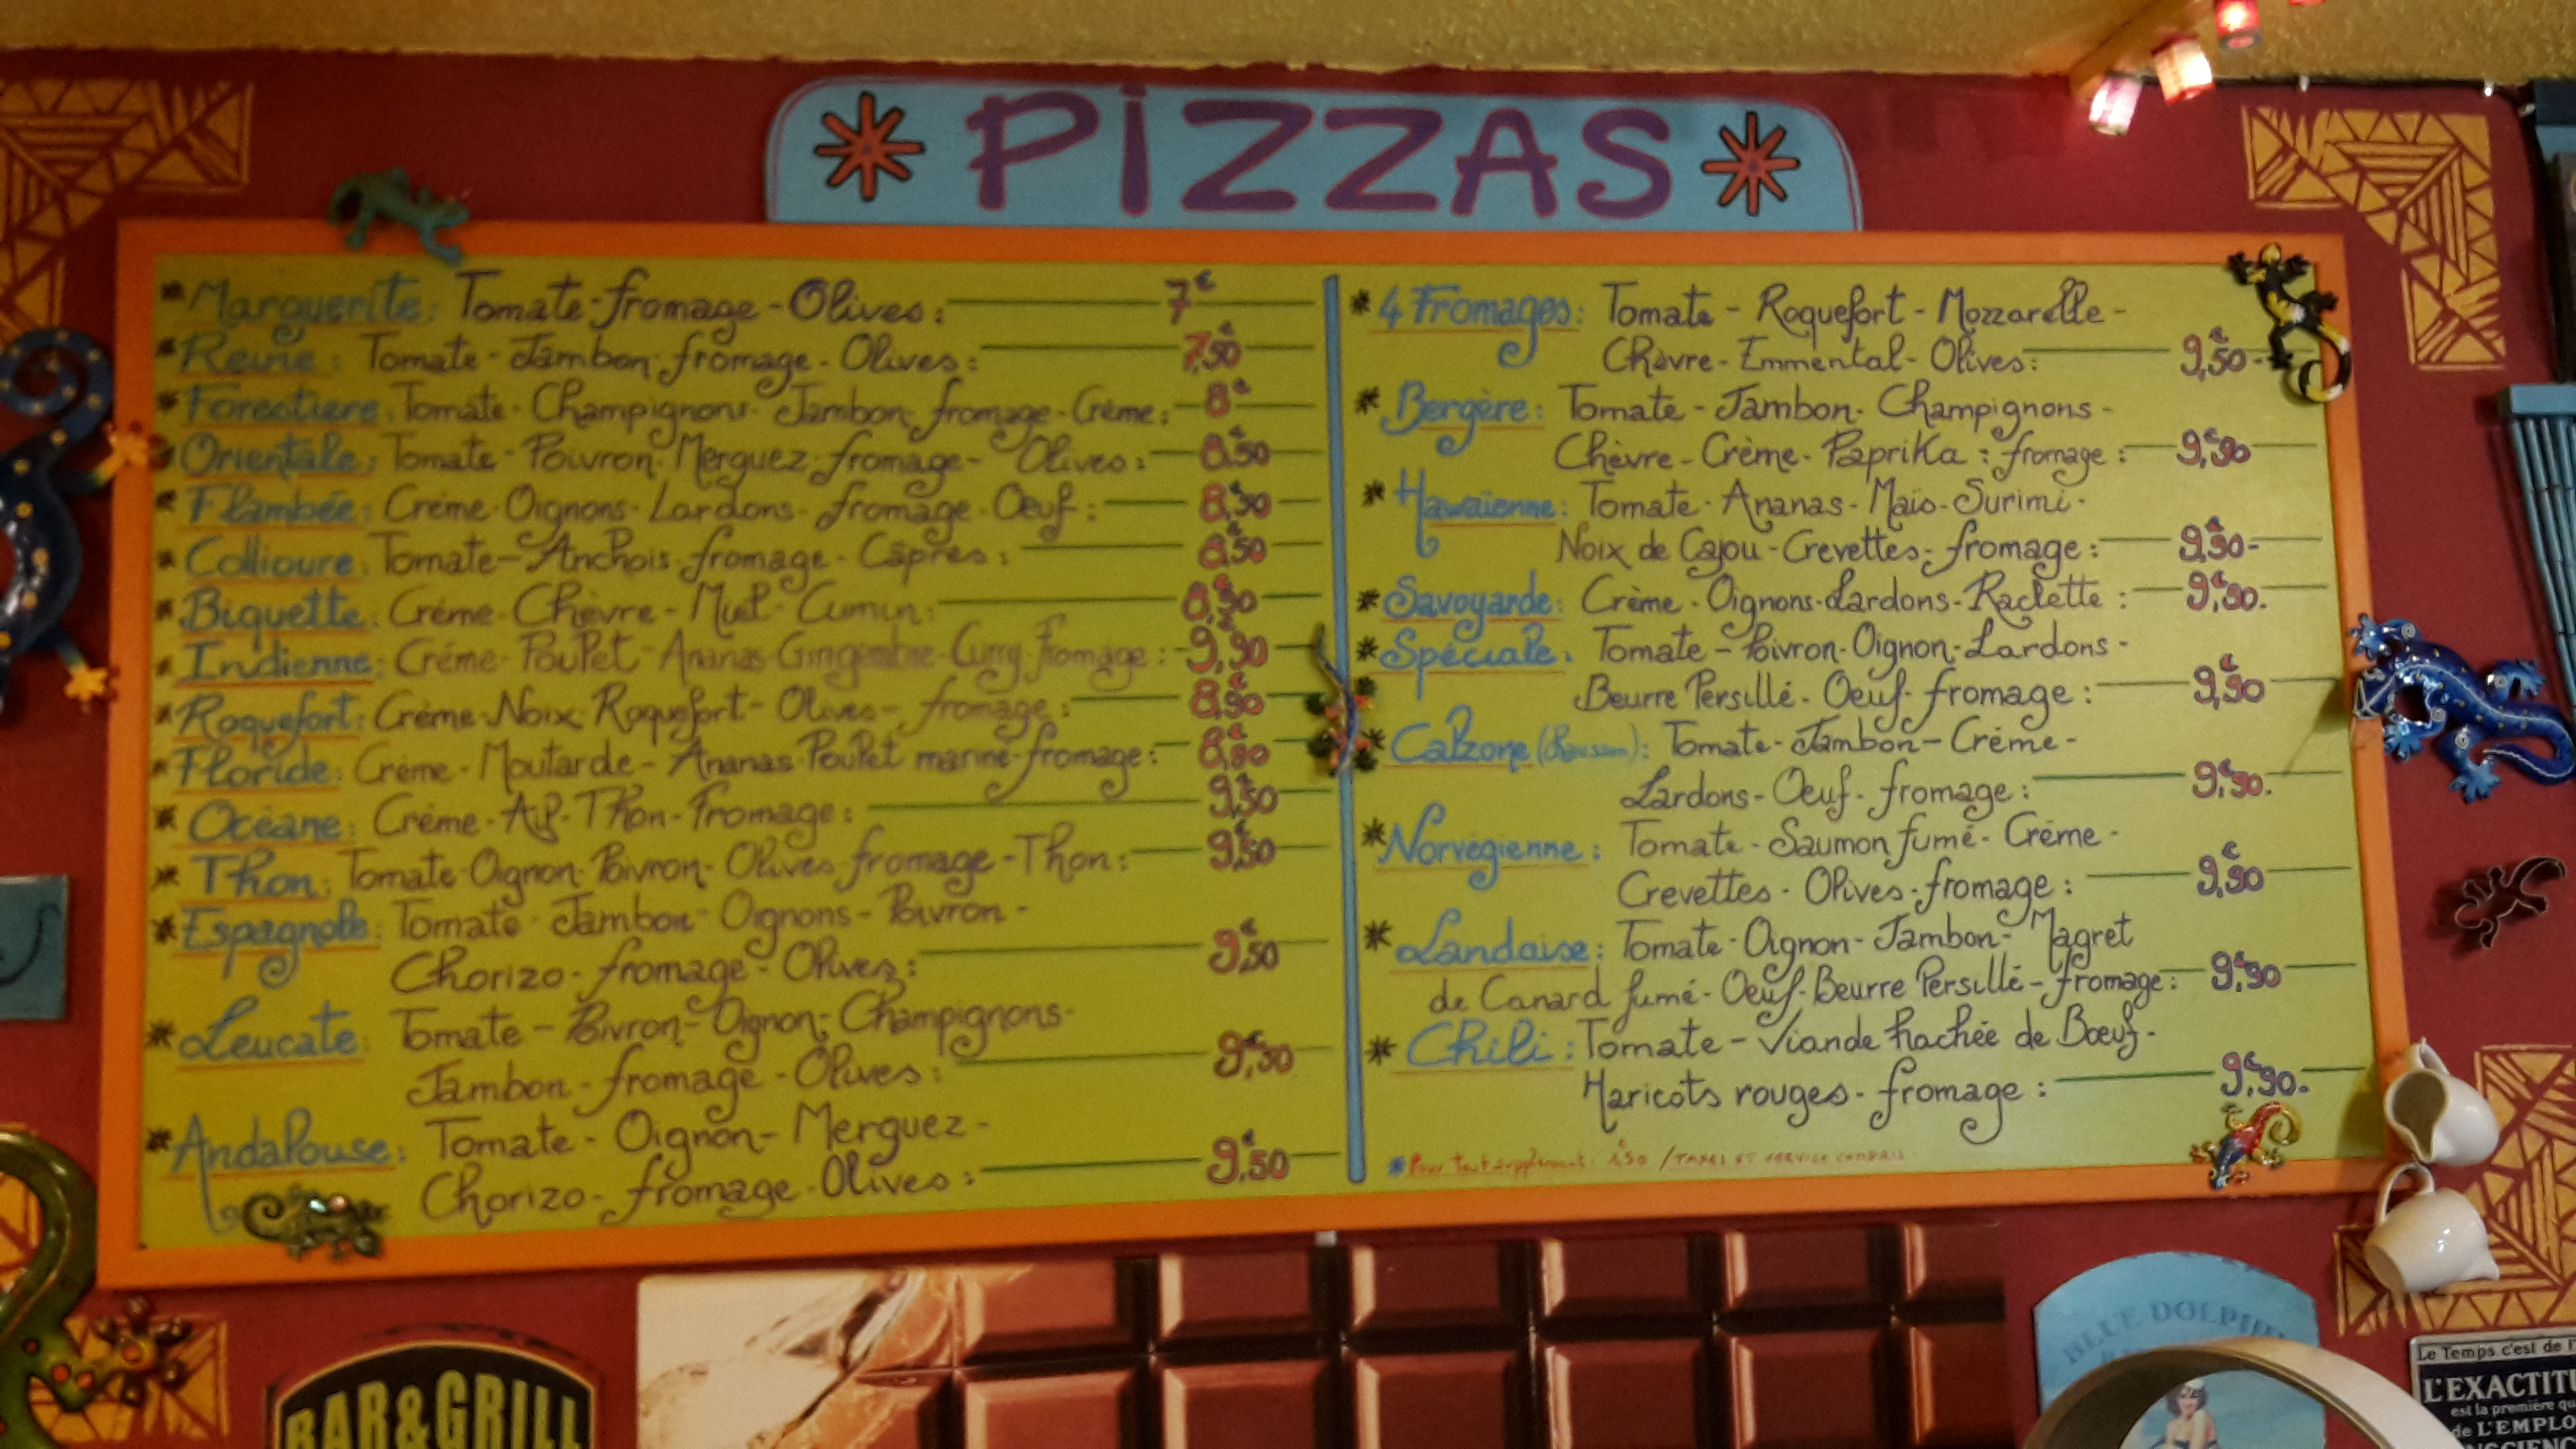 PIZZAS
* Marguerite: Tomate-fromage-Olives: 7€
* Reine: Tomate-Jambon-fromage-Olives: 7,50€
* Forestiere: Tomate-Champignons-Jambon-fromage-Crème: 8€
* Orientale: Tomate-Poivron-Merguez-fromage-Olives: 8,50€
* Flambée: Crème-Oignons-Lardons-fromage-Oeuf: 8,50€
* Collioure: Tomate-Anchois-fromage-Câpres: 8,50€
* Biquette: Crème-Chèvre-Miel-Cumin: 8,50€
* Indienne: Crème-Poulet-Ananas-Gingembre-Curry-fromage: 9,90€
* Roquefort: Crème-Noix-Roquefort-Olives-fromage: 8,90€
* Floride: Crème-Moutarde-Ananas-Poulet mariné-fromage: 8,90€
* Océane: Crème-Ail-Thon-fromage: 9,50€
* Thon: Tomate-Oignon-Poivron-Olives-fromage-Thon: 9,50€
* Espagnole: Tomate-Jambon-Oignons-Poivron-
Chorizo-fromage-Olives: 9,50€
* Leucate: Tomate-Poivron-Oignon-Champignons-
Jambon-fromage-Olives: 9,50€
* Andalouse: Tomate-Oignon-Merguez-
Chorizo-fromage-Olives: 9,50€
* 4 Fromages: Tomate-Roquefort-Mozzarelle-
Chèvre-Emmental-Olives: 9,50€
* Bergère: Tomate-Jambon-Champignons-
Chèvre-Crème-Paprika: fromage: 9,90€
* Hawaïenne: Tomate-Ananas-Maïs-Surimi-
Noix de Cajou-Crevettes-fromage: 9,90€
* Savoyarde: Crème-Oignons-Lardons-Raclette: 9,90€
* Spéciale: Tomate-Poivron-Oignon-Lardons-
Beurre Persillé-Oeuf-fromage: 9,90€
* Calzone (Chausson): Tomate-Jambon-Crème-
Lardons-Oeuf-fromage: 9,90€
* Norvégienne: Tomate-Saumon fumé-Crème-
Crevettes-Olives-fromage: 9,90€
* Landaise: Tomate-Oignon-Jambon-Magret
de Canard fumé-Oeuf-Beurre Persillé-fromage: 9,90€
* Chili: Tomate-Viande hachée de Boeuf-
Haricots rouges-fromage: 9,90€
* Pour tout supplément: 1,50€ / TAXES ET SERVICE COMPRIS
BAR & GRILL
BLUE DOLPHIN
Le Temps c'est de
L'EXACTITU
est la première qu
de L'EMPLO